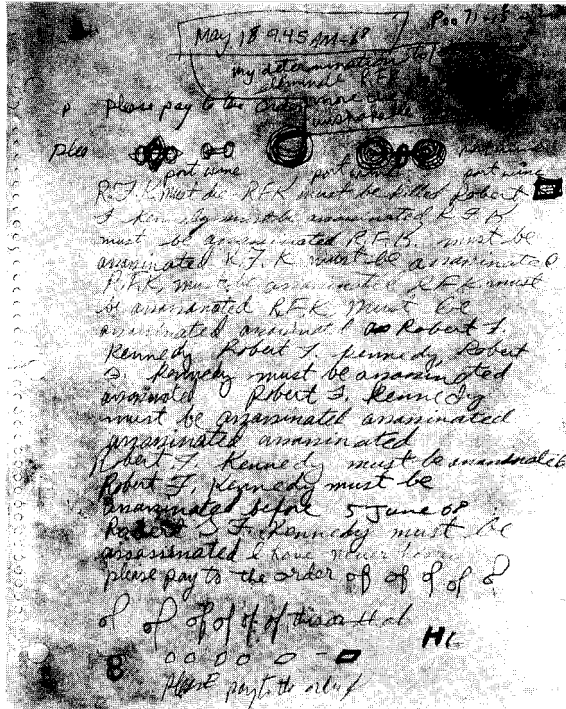 May 18 9.45 AM-68
my determination to
eliminate R.F.K.
please pay to the order more
unshakable
port wine port wine port wine
R.F.K. must die R.F.K. must be killed Robert
F. Kennedy must be assassinated R.F.K.
must be assassinated R.F.K. must be
assassinated R.F.K. must be assassinated
R.F.K. must be assassinated R.F.K. must
be assassinated R.F.K. must be
assassinated assassinated Robert F.
Kennedy Robert F. Kennedy, Robert
F. Kennedy must be assassinated
assassinated Robert F. Kennedy
must be assassinated assassinated
assassinated assassinated
Robert F. Kennedy must be assassinated
Robert F. Kennedy must be
assassinated before 5 June 68
Robert F. Kennedy must be
assassinated I have never
please pay to the order of of of of
of of of of of of this or that
8
please pay to the order of